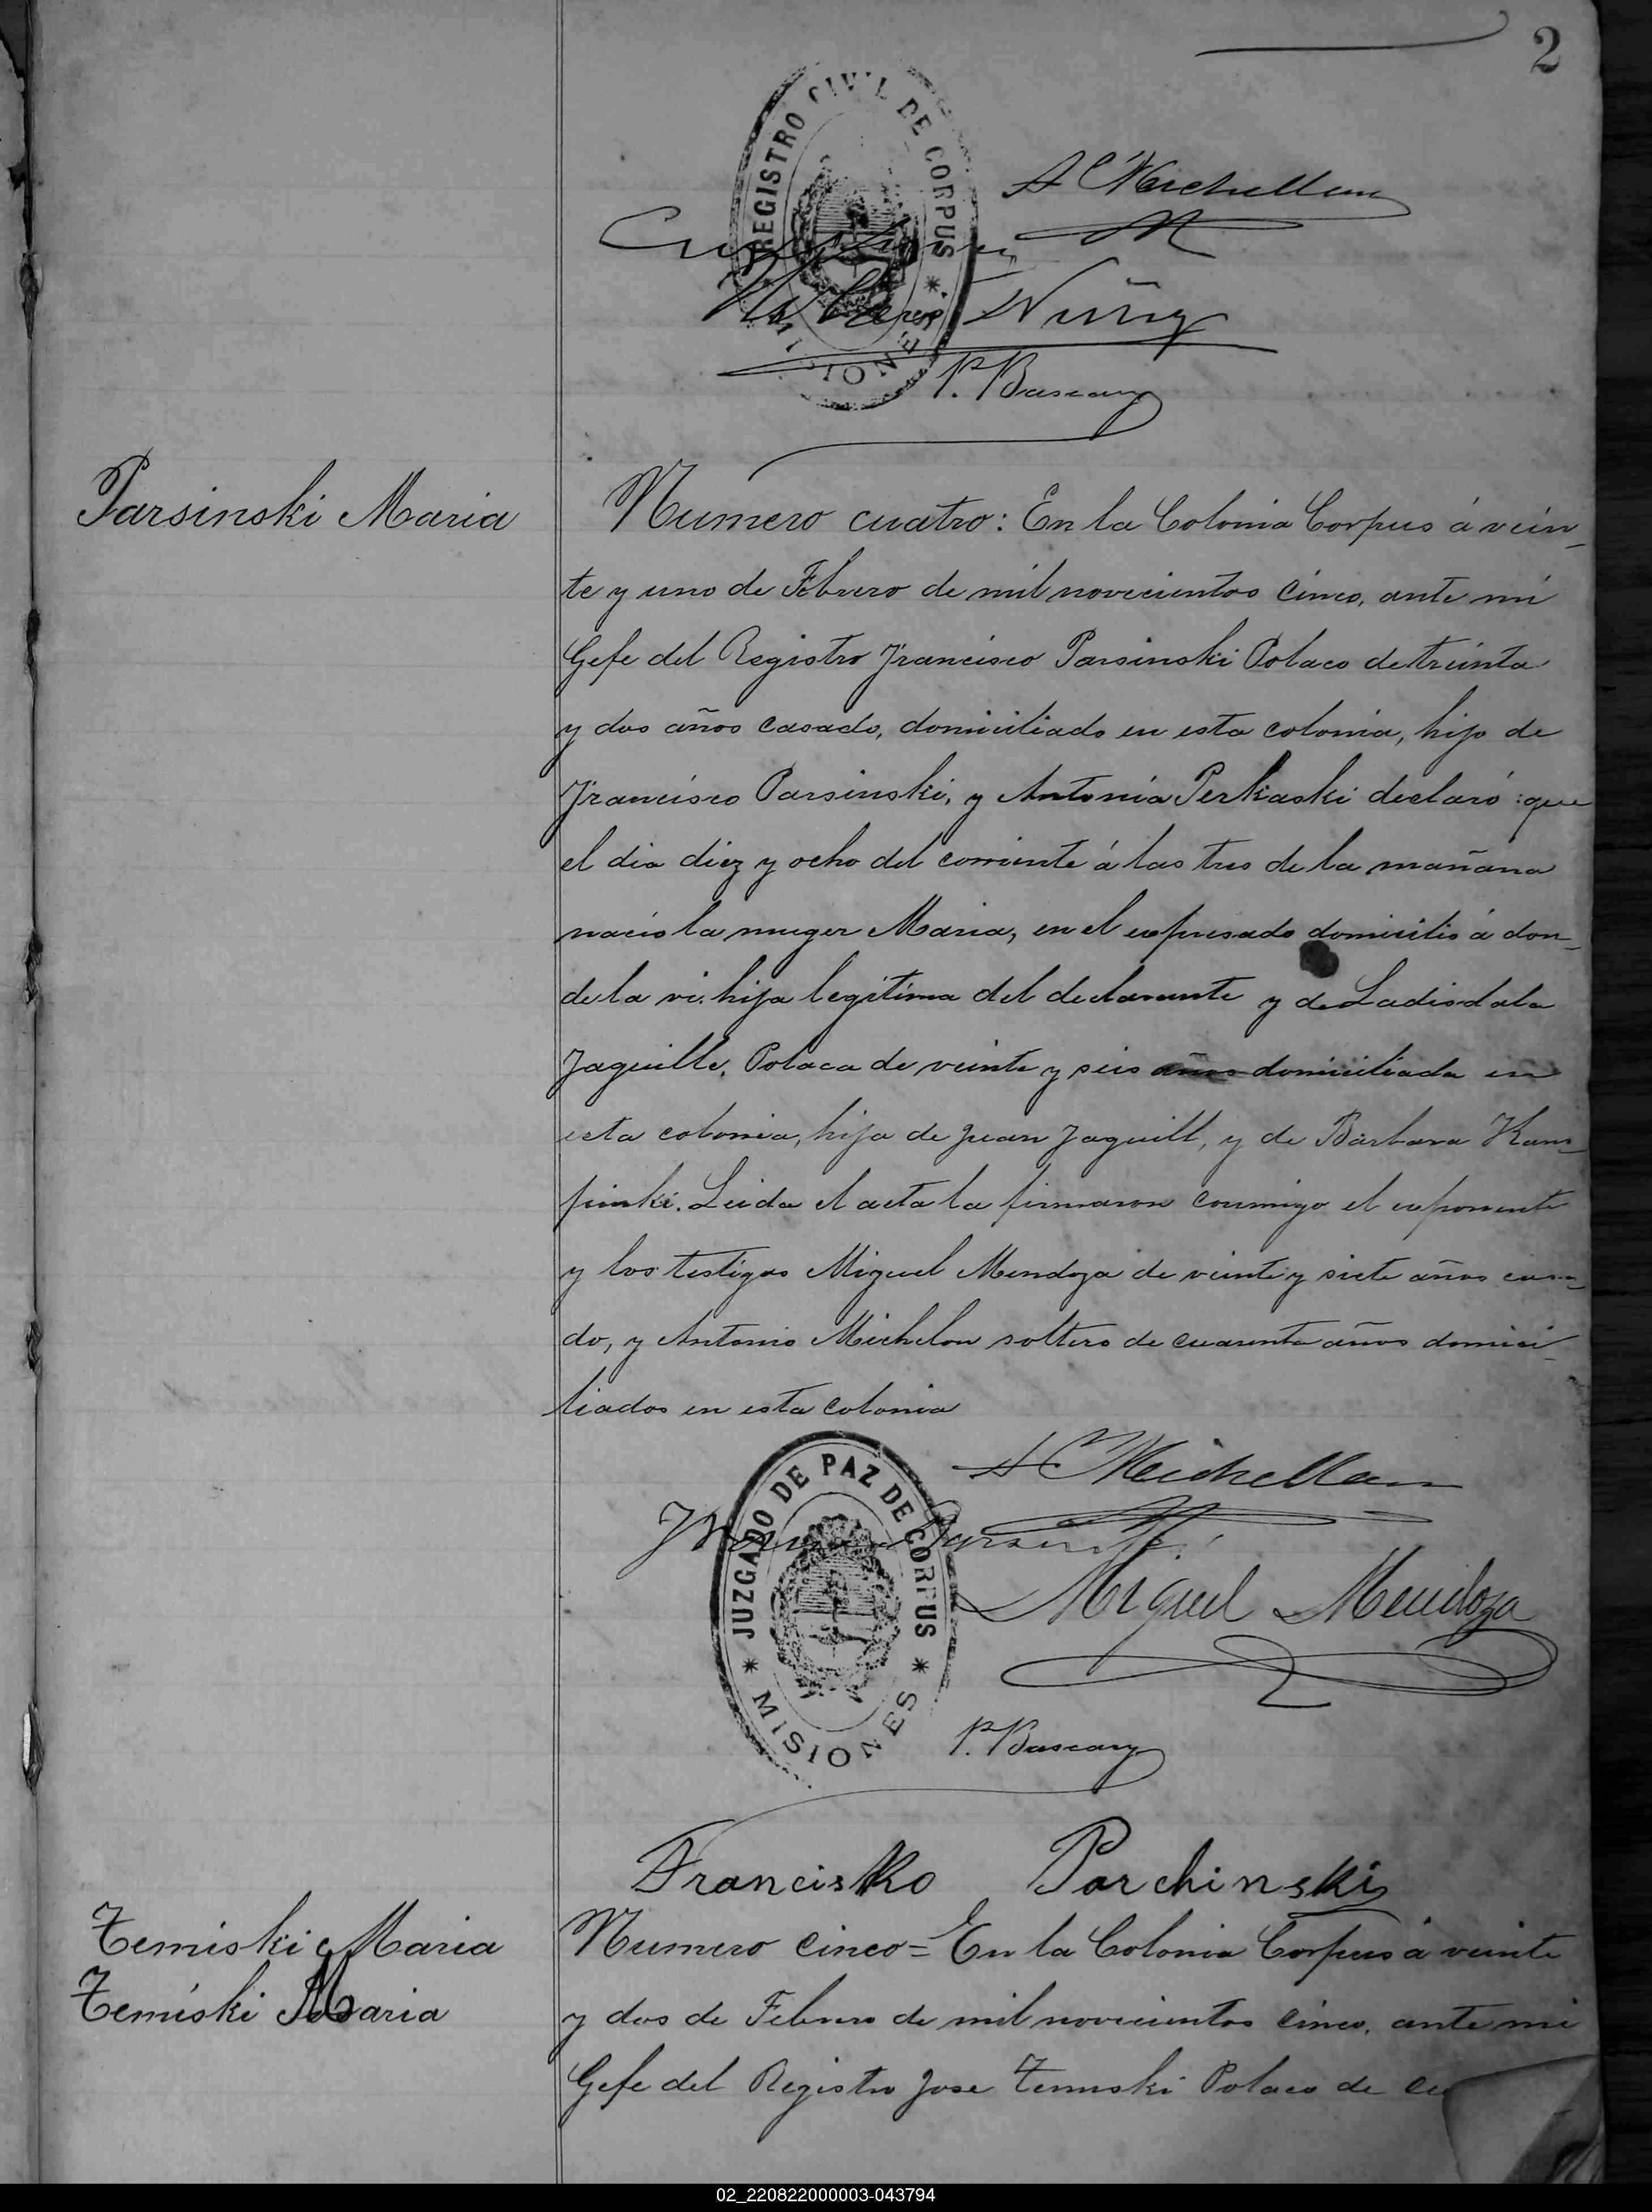 2
REGISTRO CIVIL DE CORPUS
MISIONES
A Michellon
Nuñez
P. Bascary
Parsinski Maria
Numero cuatro: En la Colonia Corpus á vein-
te y uno de Febrero de mil novecientos cinco, ante mi
Gefe del Registro Francisco Parsinski Polaco de treinta
y dos años casado, domiciliado en esta colonia, hijo de
Francisco Parsinski, y Antonia Perkaski declaró: que
el dia diez y ocho del corriente á las tres de la mañana
nacio la muger Maria, en el expresado domicilio á don-
de la vi. hija legitima del declarante y de Ladisdala
Jaguille, Polaca de veinte y seis años domiciliada en
esta colonia, hija de Juan Jaguill, y de Barbara Kam-
pinki. Leida el acta la firmaron conmigo el exponente
y los testigos Miguel Mendoza de veinte y siete años casa-
do, y Antonio Michelon soltero de cuarenta años domici-
liados en esta colonia
JUZGADO DE PAZ DE CORPUS
MISIONES
A Michellon
Miguel Mendoza
P. Bascary
Francisko Parchinski
Temiski Maria
Temiski Maria
Numero cinco = En la Colonia Corpus á veinte
y dos de Febrero de mil novecientos cinco, ante mi
Gefe del Registro Jose Temiski Polaco de